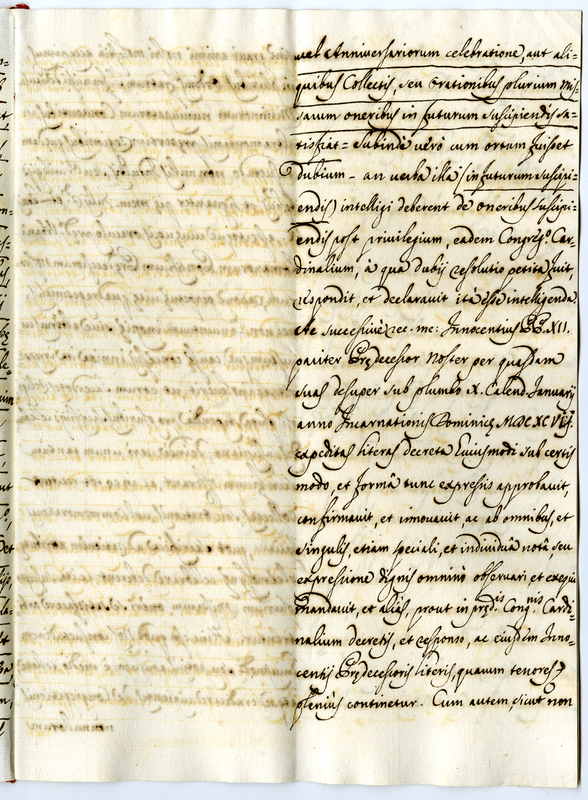 vel Anniversariorum celebratione, aut ali=
quibus Collectis, seu orationibus plurium Mis=
sarum oneribus in futurum suscipiendis sa=
tisfiat = Subinde vero cum ortum fuisset
dubium - an verba illa (in futurum suscipi=
endis) intelligi deberent de oneribus suscipi=
endis post privilegium, eadem Congreg.o Car=
dinalium, à qua dubij resolutio petita fuit,
respondit, et declaravit ità esse intelligenda.
Ac successivè rec: me: Innocentius PP. XII.
pariter Prędecessor Noster per quasdam
suas desuper sub plumbo X. Calend. Januarij
anno Incarnationis Dominicę
expeditas literas decreta huiusmodi sub certis
modo, et formâ tunc expressis approbavit,
confirmavit, et innovavit, ac ab omnibus, et
singulis, etiam speciali, et individuâ notâ, seu
expressione dignis omninò observari, et exequi
mandavit, et aliàs, prout in pręd.is Cong.nis Cardi=
nalium decretis, et responso, ac eiusdem Inno=
centij Prędecessoris literis, quarum tenores
plenius continetur. Cum autem, sicut non